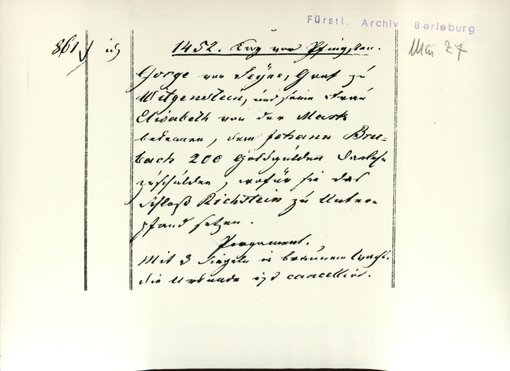 Fürstl. Archiv Berleburg
Mai 27
861
1452. Tag vor Pfingsten.
George von Seyn, Graf zu
Witgenstein, und seine Frau
Elisabeth von der Mark
bekennen, dem Johann Bru-
bach 200 Goldgülden Darlehn
zuschulden, wofür sie das
Schloß Richstein zu Unter-
pfand setzen.
Pergament.
Mit 3 Siegeln in braunem Wachs.
die Urkunde ist cancellirt.